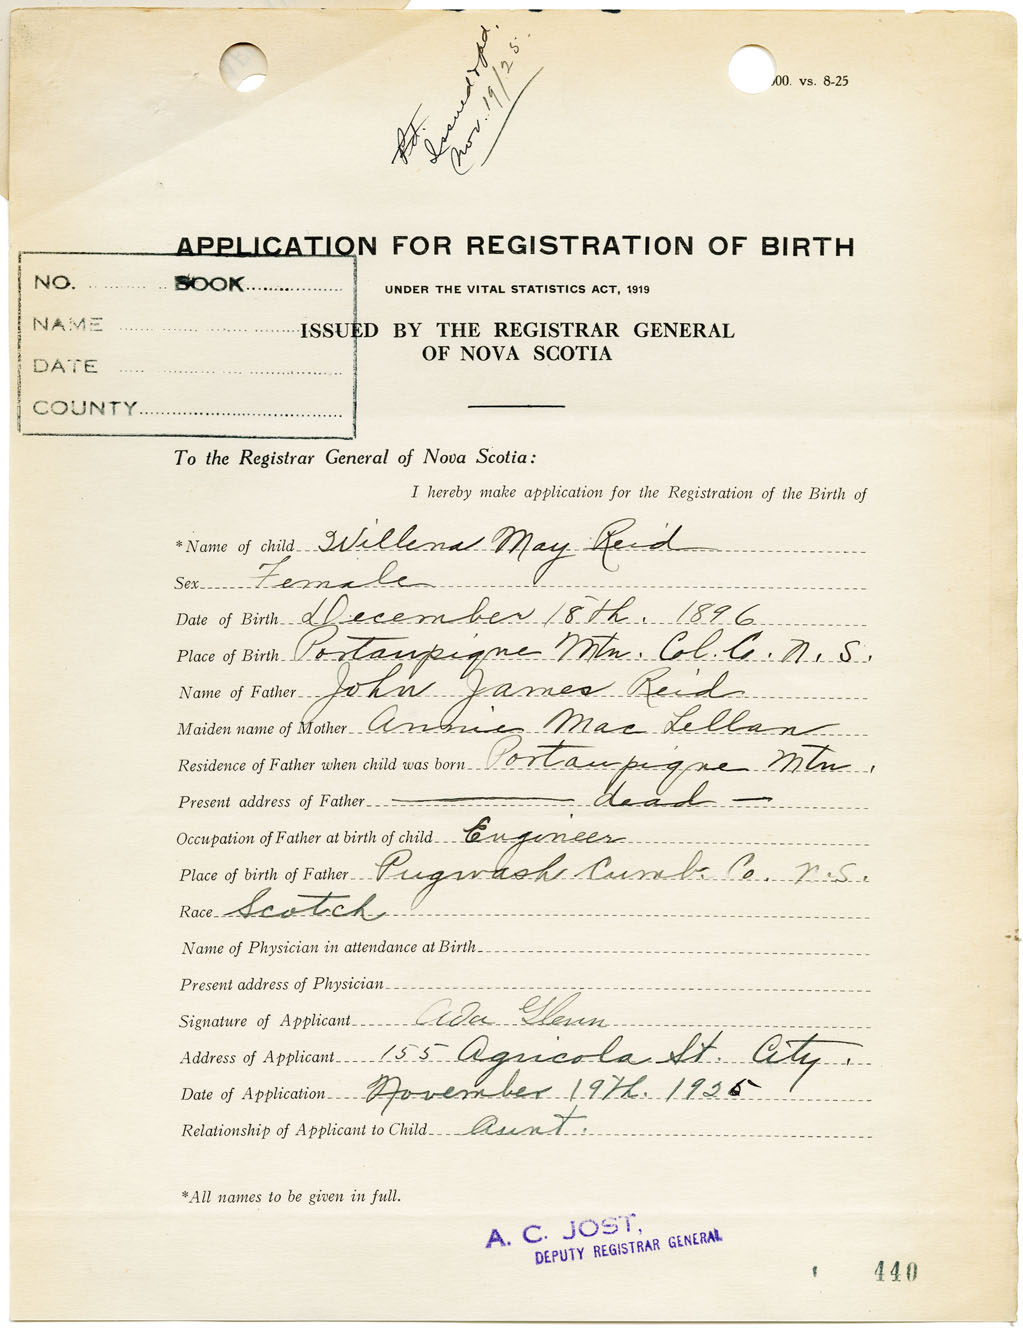 Pd.
Issued & pd.
Nov. 19/25.
00. vs. 8-25
APPLICATION FOR REGISTRATION OF BIRTH
UNDER THE VITAL STATISTICS ACT, 1919
ISSUED BY THE REGISTRAR GENERAL
OF NOVA SCOTIA
NO. BOOK
NAME
DATE
COUNTY
To the Registrar General of Nova Scotia:
I hereby make application for the Registration of the Birth of
*Name of child Willena May Reid
Sex Female
Date of Birth December 18th. 1896
Place of Birth Portaupique Mtn. Col. Co. N. S.
Name of Father John James Reid
Maiden name of Mother Annie Mac Lellan
Residence of Father when child was born Portaupique Mtn.
Present address of Father — dead —
Occupation of Father at birth of child Engineer
Place of birth of Father Pugwash Cumb. Co. N.S.
Race Scotch
Name of Physician in attendance at Birth
Present address of Physician
Signature of Applicant Ada Glenn
Address of Applicant 155 Agricola St. City.
Date of Application November 19th. 1925
Relationship of Applicant to Child Aunt.
*All names to be given in full.
A. C. JOST,
DEPUTY REGISTRAR GENERAL
440